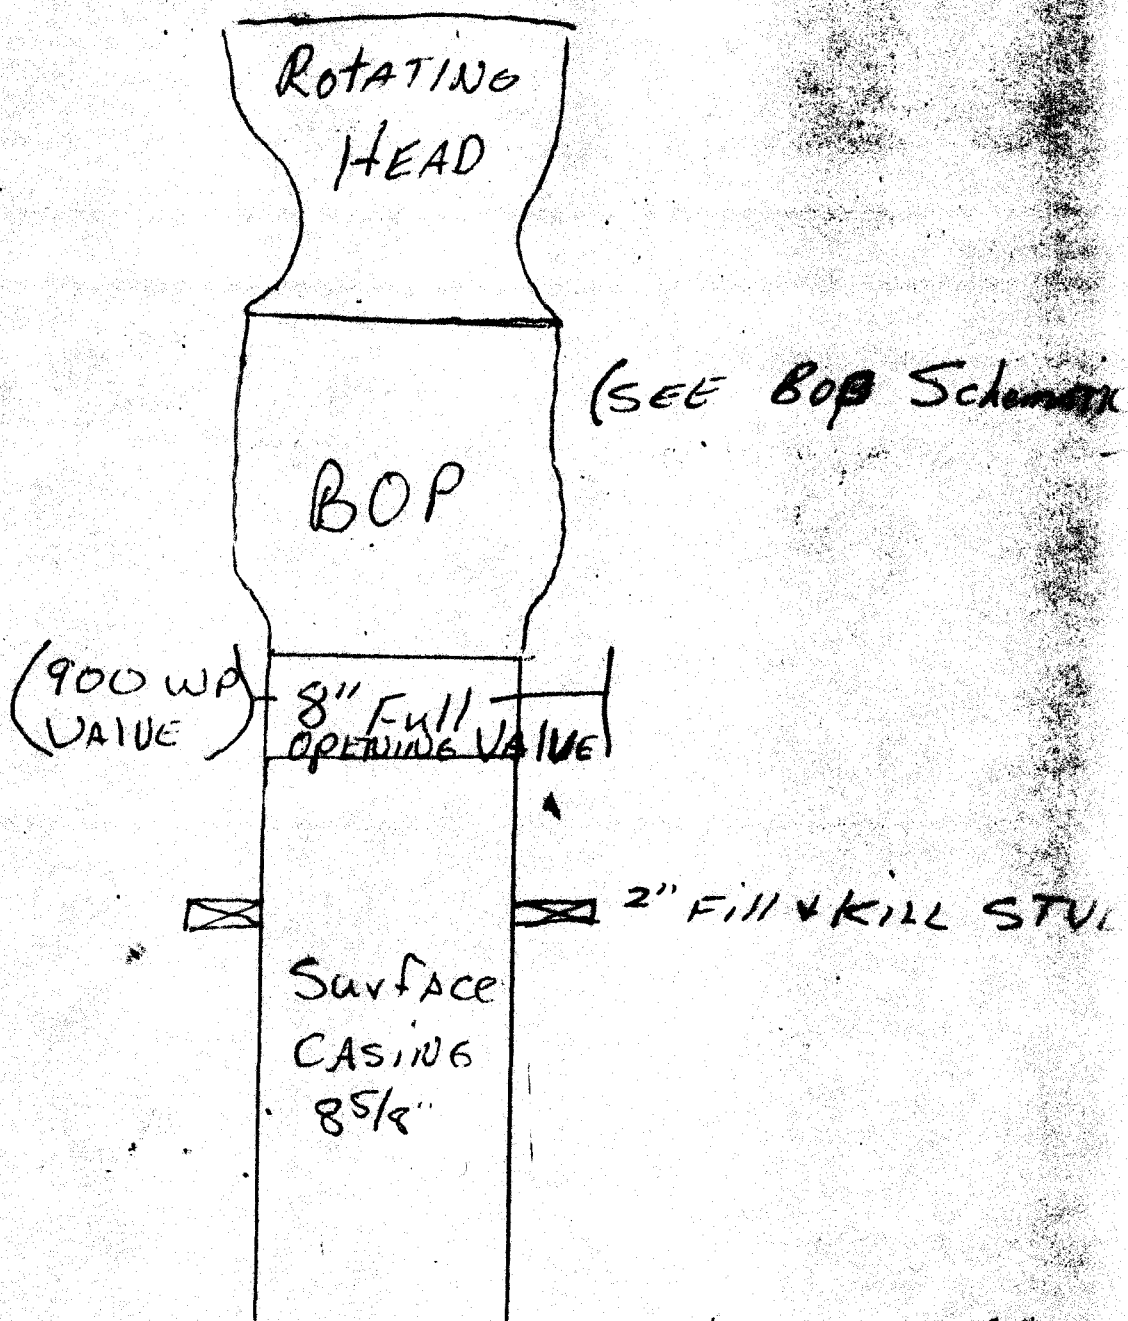 ROTATING
HEAD
(SEE BOP Schematic
BOP
(900 WP
VALVE)
8" Full
OPENING VALVE
2" Fill & KILL
Surface
CASING
8 5/8"